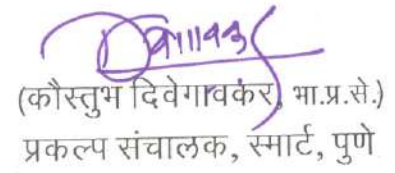 (कौस्तुभ दिवेगावकर) भा.प्र.से.)
प्रकल्प संचालक, स्मार्ट, पुणे